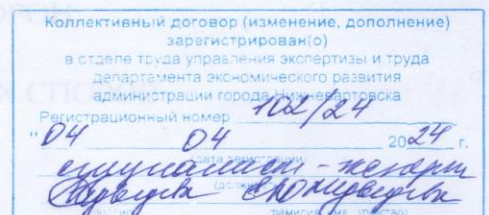 Коллективный договор (изменение, дополнение)
зарегистрирован(о)
в отделе труда управления экспертизы и труда
департамента экономического развития
администрации города Нижневартовска
Регистрационный номер 102/24
"04 04 2024 г.
(дата регистрации)
специалист-эксперт